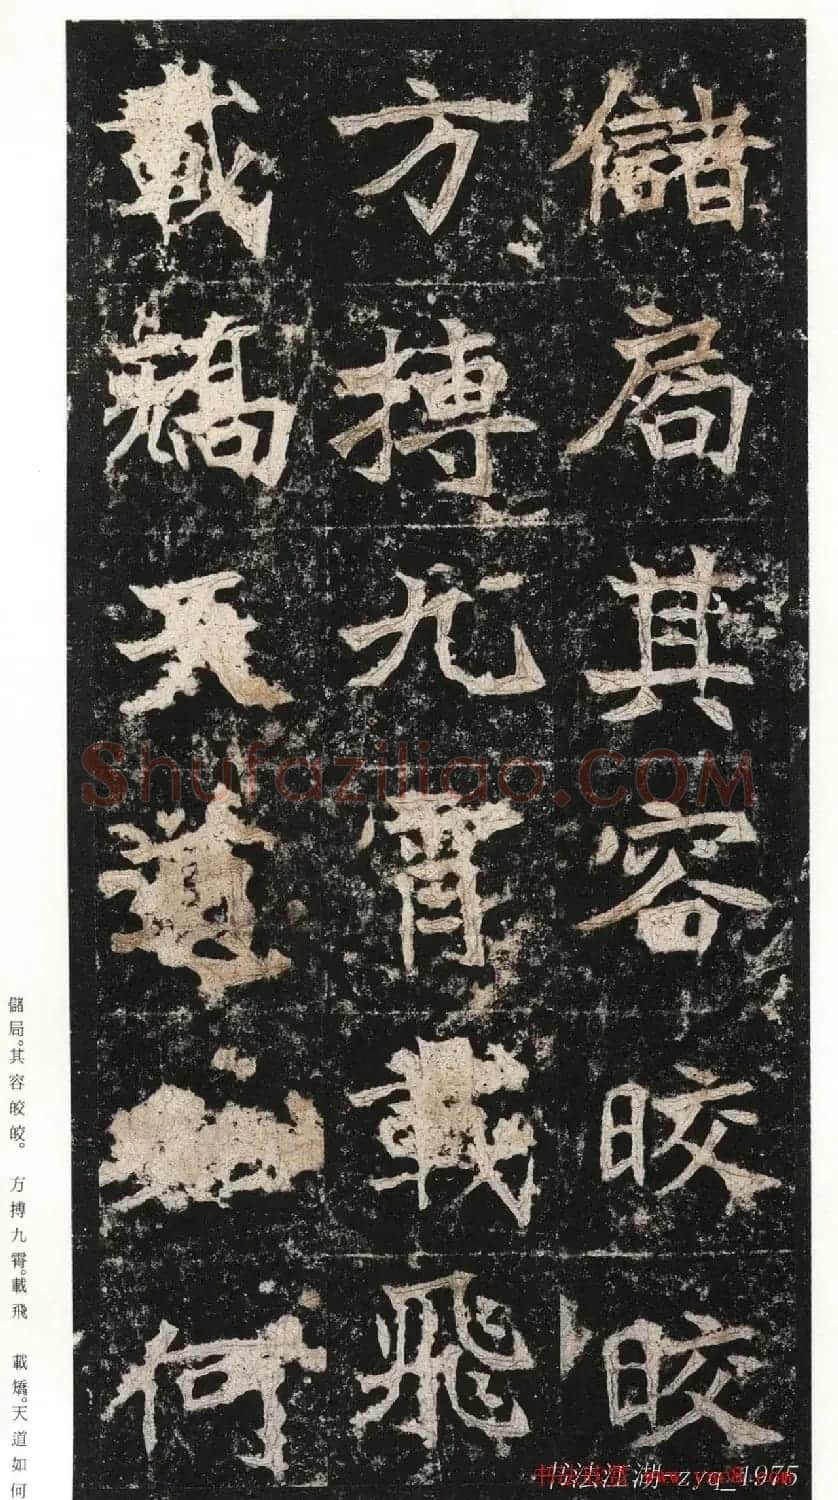 儲局其容晈晈
方搏九霄載飛
載矯天道如何
儲局。其容皎皎。 方搏九霄。載飛 載矯。天道如何
Shufaziliao.COM
书法江湖 zyq_1975